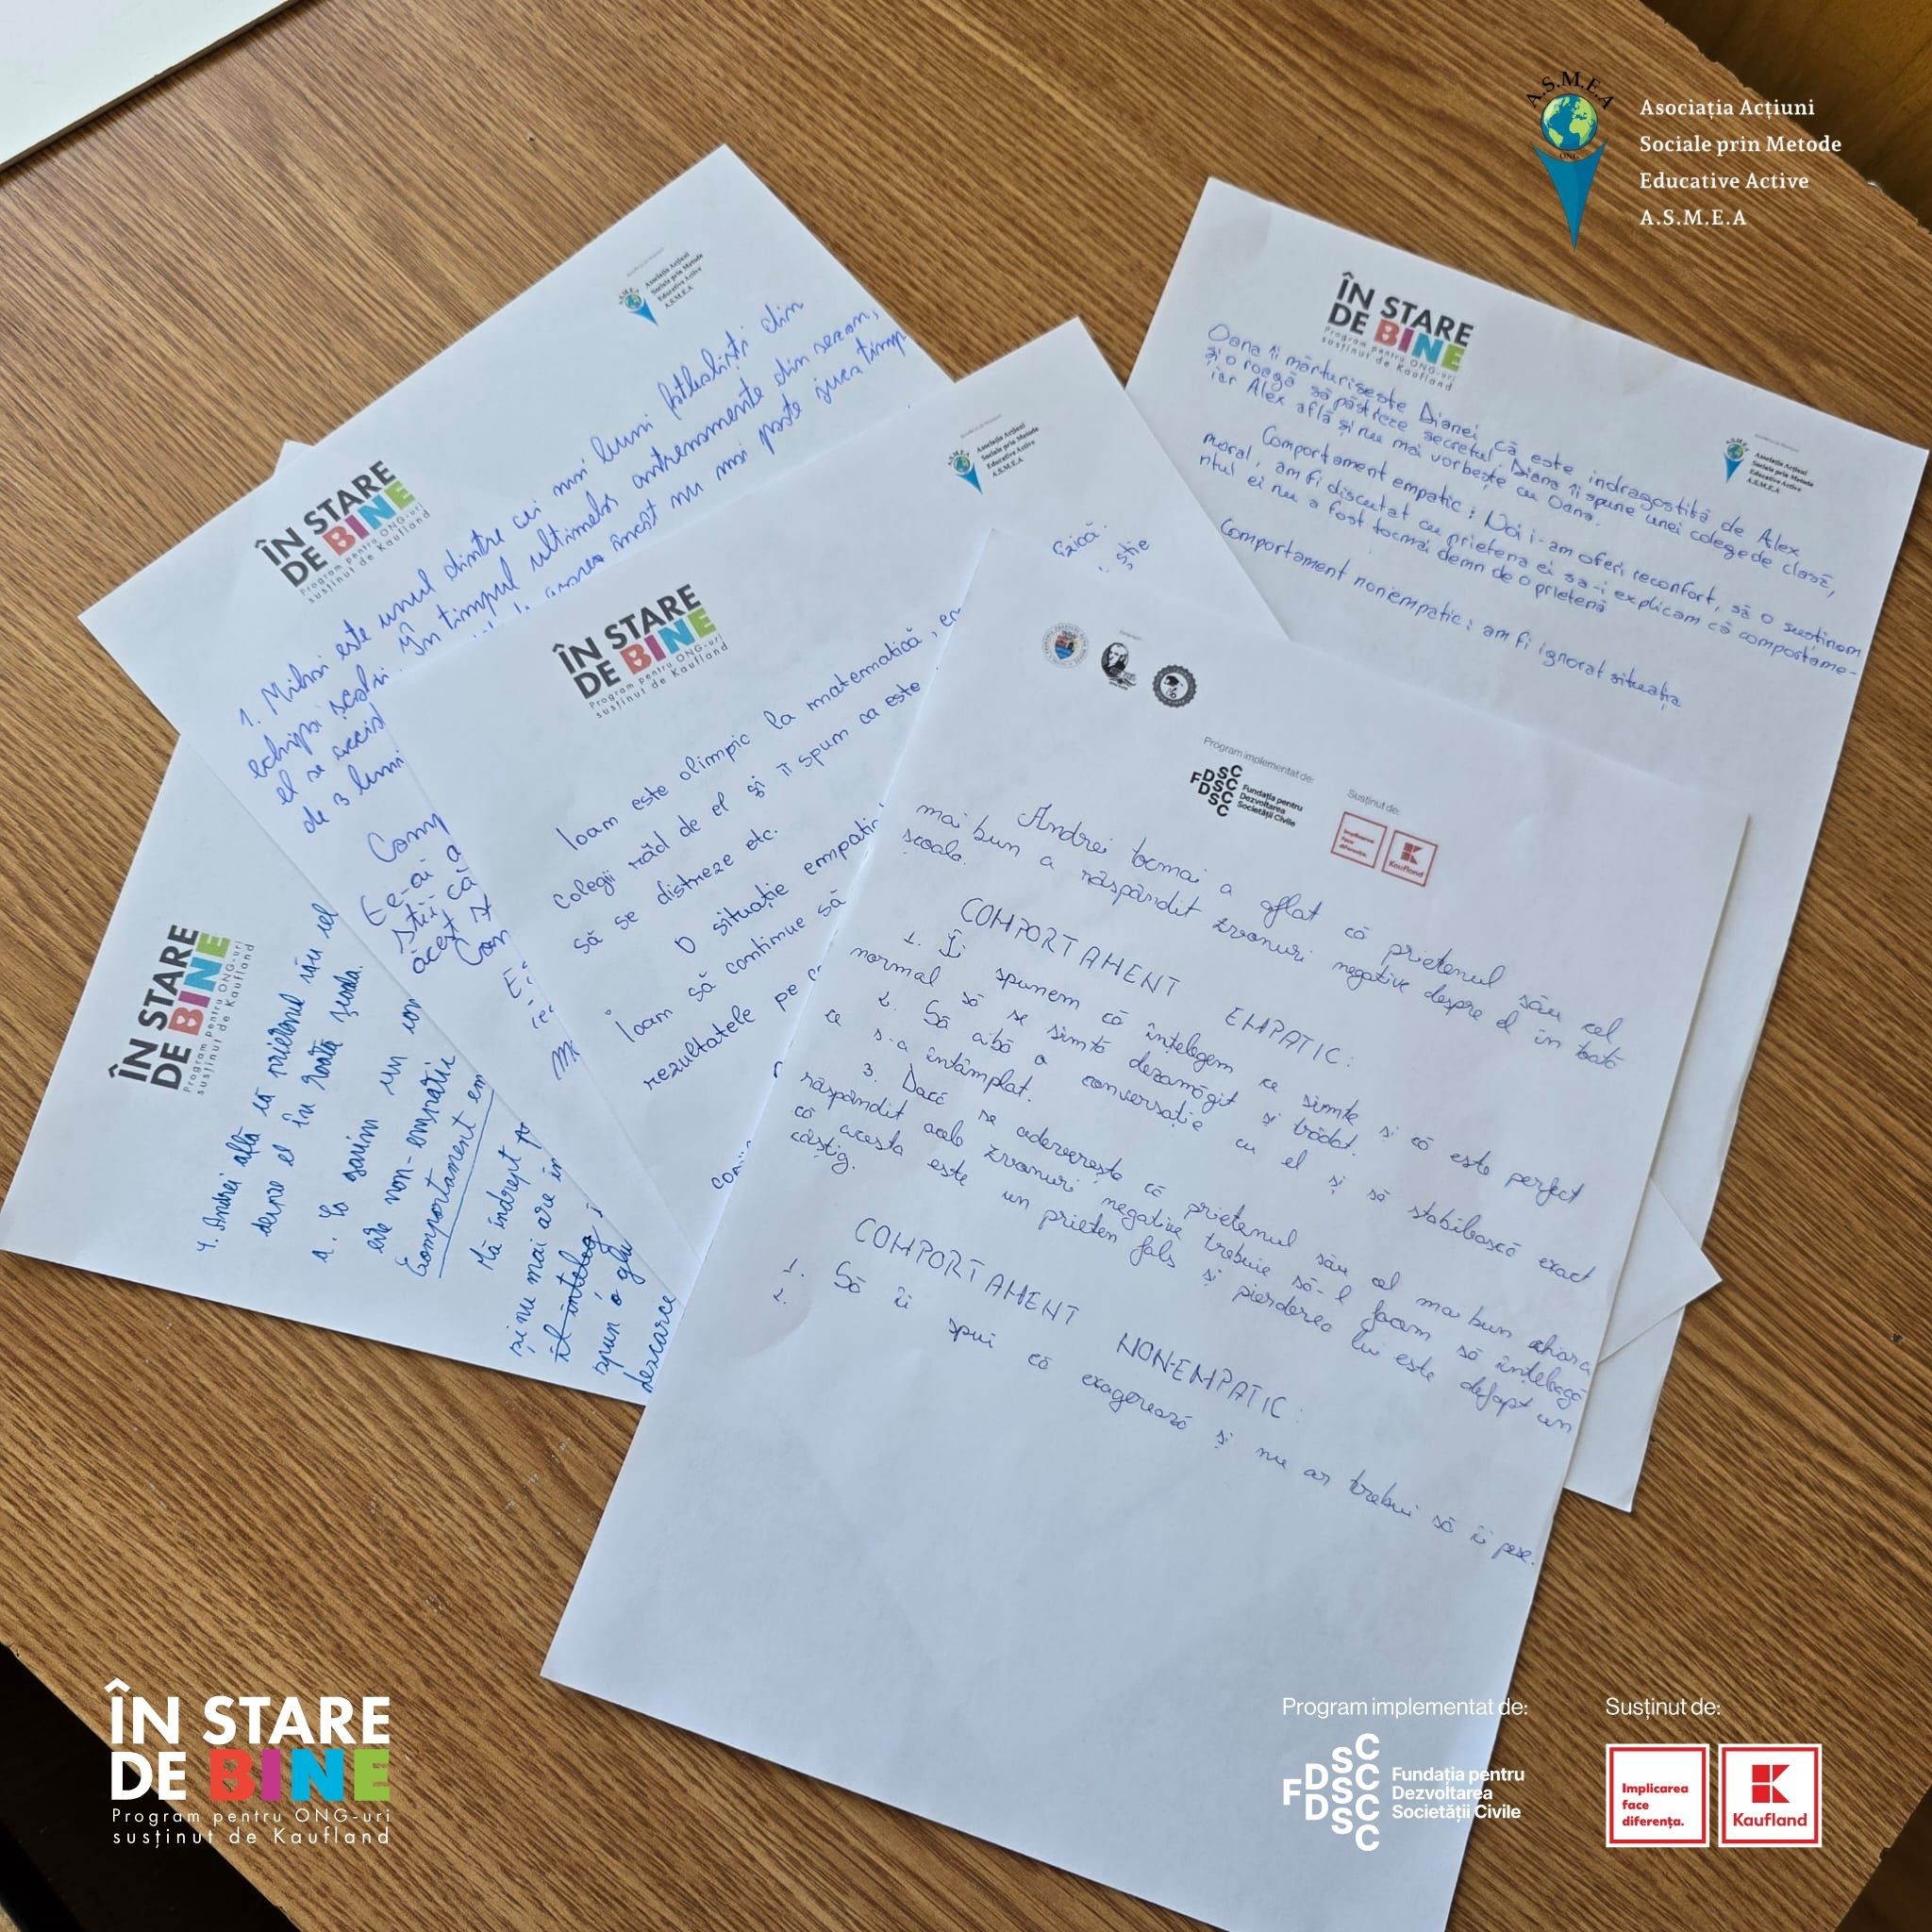 A.S.M.E.A
ONG
Asociația Acțiuni
Sociale prin Metode
Educative Active
A.S.M.E.A
Asociația Acțiuni
Sociale prin Metode
Educative Active
A.S.M.E.A
ÎN STARE
DE BINE
Program pentru ONG-uri
susținut de Kaufland
1. Mihai este unul dintre cei mai buni fotbaliști din
echipa școlii. În timpul ultimelor antrenamente din sezon,
el se accid
încât nu mai poate juca timp
de 3 luni
Comp
ÎN STARE
DE BINE
Program pentru ONG-uri
susținut de Kaufland
Asociația Acțiuni
Sociale prin Metode
Educative Active
A.S.M.E.A
Oana îi mărturisește Dianei că este indragostită de Alex
și o roagă să păstreze secretul. Diana îi spune unei colege de clasă,
iar Alex află și nu mai vorbește cu Oana.
Comportament empatic: Noi i-am oferi reconfort, să o susținem
moral, am fi discutat cu prietena ei sa-i explicam că comportame-
ntul ei nu a fost tocmai demn de o prietenă
Comportament nonempatic: am fi ignorat situația
Asociația Acțiuni
Sociale prin Metode
Educative Active
A.S.M.E.A
fizică.
știe
ÎN STARE
DE BINE
Program pentru ONG-uri
susținut de Kaufland
Ioan este olimpic la matematică,
Colegii râd de el și îi spun ca este
să se distreze etc.
O situație empatic
Ioan să continue să
rezultatele pe
ÎN STARE
DE BINE
Program pentru ONG-uri
susținut de Kaufland
4. Andrei află că prietenul său cel
despre el în toată școala.
Comportament em
Mă îndrept
și nu mai are în
il inteleg
spun o glu
descarce
Program implementat de:
FDSC
Fundația pentru
Dezvoltarea
Societății Civile
Susținut de:
Implicarea
face
diferența.
Kaufland
Andrei tocmai a aflat că prietenul său cel
mai bun a răspândit zvonuri negative despre el în toată
școala.
COMPORTAMENT EMPATIC:
1. Îi spunem că înțelegem ce simte și că este perfect
normal să se simtă dezamăgit și trădat.
2. Să aibă o conversație cu el și să stabilească exact
ce s-a întâmplat.
3. Dacă se adeverește că prietenul său cel mai bun chiar a
răspândit acele zvonuri negative trebuie să-l facem să înțeleagă
că acesta este un prieten fals și pierderea lui este defapt un
câștig.
COMPORTAMENT NON-EMPATIC:
1. Să îi spui că exagerează și nu ar trebui să îi pese.
2.
ÎN STARE
DE BINE
Program pentru ONG-uri
susținut de Kaufland
Program implementat de:
FDSC
Fundația pentru
Dezvoltarea
Societății Civile
Susținut de:
Implicarea
face
diferența.
Kaufland